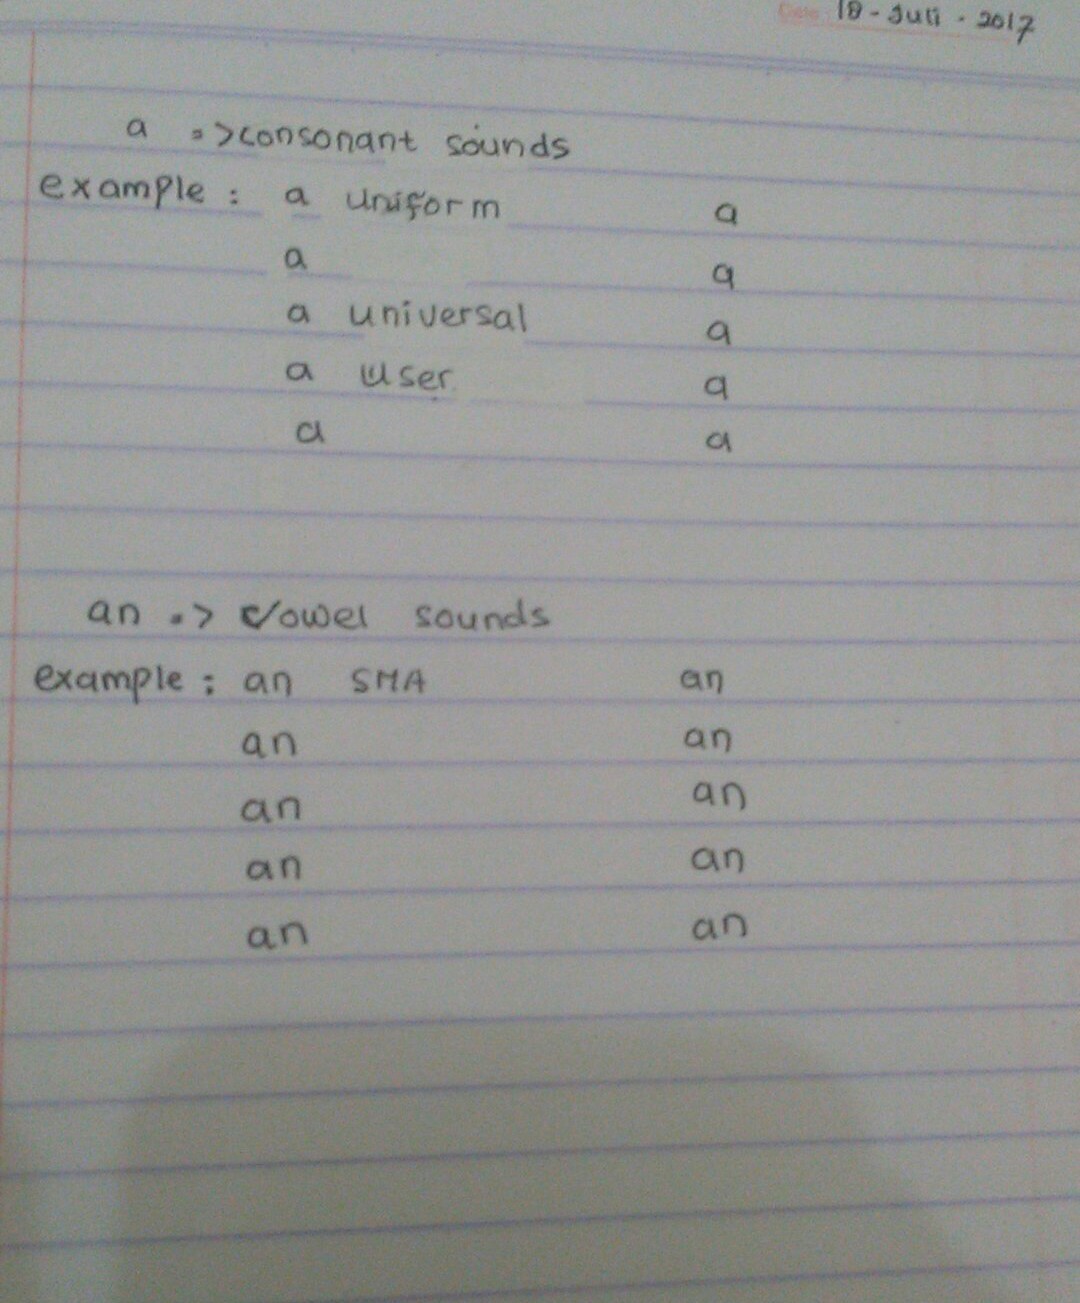 Date 18 - Juli - 2017
a => consonant sounds
example : a uniform a
a a
a universal a
a user a
a a
an => vowel sounds
example : an SMA an
an an
an an
an an
an an